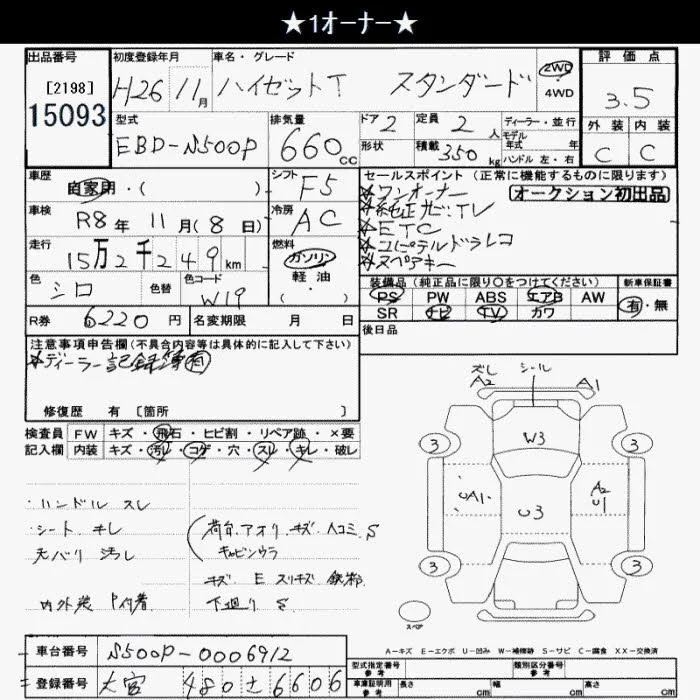 ★1オーナー★
出品番号 初度登録年月 車名・グレード 評価点
[2198] H26 11月 ハイゼットT スタンダード 2WD・4WD 3.5
15093
型式 排気量 ドア 2 定員 2人 ディーラー・並行 外装 内装
EBD-S500P 660cc 形状 積載 350kg モデル年式 年 C C
ハンドル 左・右
車歴 シフト セールスポイント(正常に機能するものに限ります)
自家用・( ) F5 ☆ワンオーナー オークション初出品
車検 冷房 ☆純正ナビ・TV
R8年 11月(8日) AC ☆ETC
走行 燃料 ☆ユピテルドラレコ
15万2千249km ガソリン ☆スペアキー
軽油
色 色替 色コード ( ・ ) 装備品(純正品に限り○をつけてください) 新車保証書
シロ W19 PS PW ABS エアB AW 有・無
R券 6220円 名変期限 月 日 SR ナビ TV カワ
後日品
注意事項申告欄(不具合内容等は具体的に記入して下さい)
☆ディーラー記録簿有
修復歴 有 [箇所 ]
検査員 FW キズ・飛石・ヒビ割・リペア跡・×要
記入欄 内装 キズ・汚レ・コゲ・穴・スレ・キレ・破レ
ズレ シール
A2 A1
3 W3 3
UA1 U3 A2
U1
3 3
スペア
・ハンドル スレ
・シート キレ
・天バリ 汚レ
荷台、アオリ キズ 凹コミ S
キャビンウラ
キズ E スリキズ
内外装 P付着 下廻り S
A-キズ E-エクボ U-凹み W-補修跡 S-サビ C-腐食 XX-交換済
車台番号 S500P-0006912
登録番号 大宮 480 さ 6606
型式指定番号 参考 類別区分番号 参考
車体証明用 参考 長さ cm 幅 cm 高さ cm